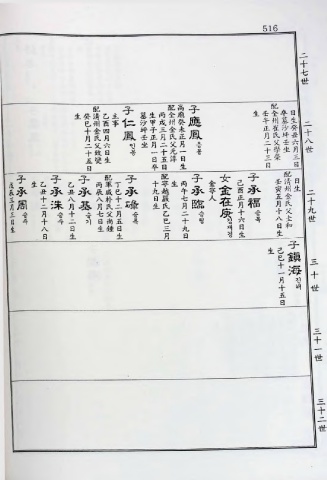 516
二十七世
二十八世
二十九世
三十世
三十一世
三十二世
日生癸丑六月三日
卒墓沙坤壬坐
配全州崔氏父學榮
壬午正月二十三日
生
子應鳳 응봉
高廟癸未正月一日生
配全州金氏父光淳
丙戌三月二十五日
生甲子正月一日卒
墓沙坤壬坐
子仁鳳 인봉
主事
乙酉四月六日生
配清州金氏父致燮
癸巳十月二十五日
生
日生
配清州金氏父士和
壬寅五月十八日生
子承福 승복
己酉正月十六日生
女金在庚 김재경
金寧人
子承臨 승림
丙午七月二十九日
生
配寧越嚴氏乙巳三月
十九日生
子承祿 승록
丁巳十二月五日生
丙辰八月七日生
子承基 승기
乙丑八月十二日生
子承洙 승수
乙丑十二月十八日
生
子承周 승주
戊辰三月三日生
子鎭海 진해
己巳十一月十五日
生